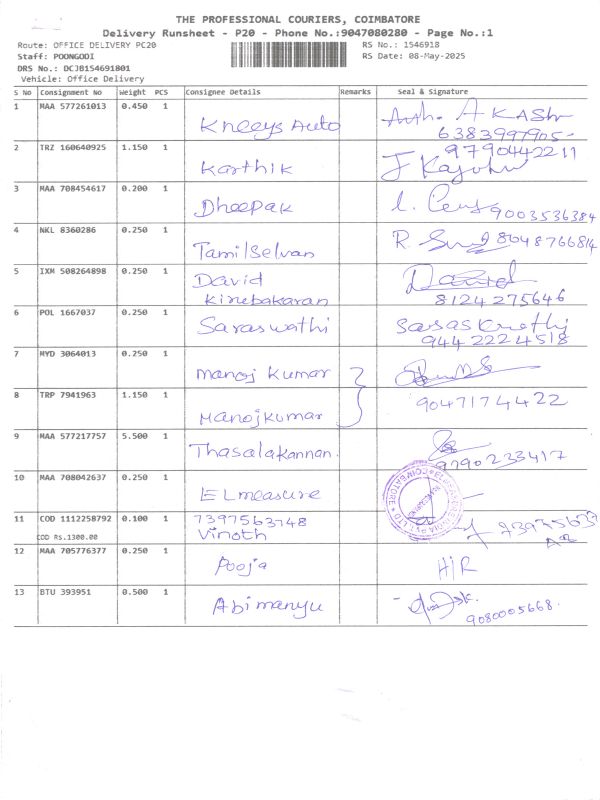 THE PROFESSIONAL COURIERS, COIMBATORE
Delivery Runsheet - P20 - Phone No.:9047080280 - Page No.:1
Route: OFFICE DELIVERY PC20 RS No.: 1546918
Staff: POONGODI RS Date: 08-May-2025
DRS No.: DCJB154691801
Vehicle: Office Delivery
S No Consignment No Weight PCS Consignee Details Remarks Seal & Signature
1 MAA 577261013 0.450 1 Kneeys Auto Auth. AKASH
6383997905-
2 TRZ 160640925 1.150 1 Karthik 9790442211
3 MAA 708454617 0.200 1 Dheepak 9003536384
4 NKL 8360286 0.250 1 Tamilselvan 8048766814
5 IXM 508264898 0.250 1 David David
Kirubakaran 8124275646
6 POL 1667037 0.250 1 Saraswathi
9442224518
7 MYD 3064013 0.250 1 Manoj Kumar
8 TRP 7941963 1.150 1 Manojkumar 9047174422
9 MAA 577217757 5.500 1 Thasalakannan. 9790233417
10 MAA 708042637 0.250 1 ELmeasure
11 COD 1112258792 0.100 1 7397563748
COD RS.1300.00 Vinoth
12 MAA 705776377 0.250 1 Pooja H/R
13 BTU 393951 0.500 1 Abimanyu
9080005668.